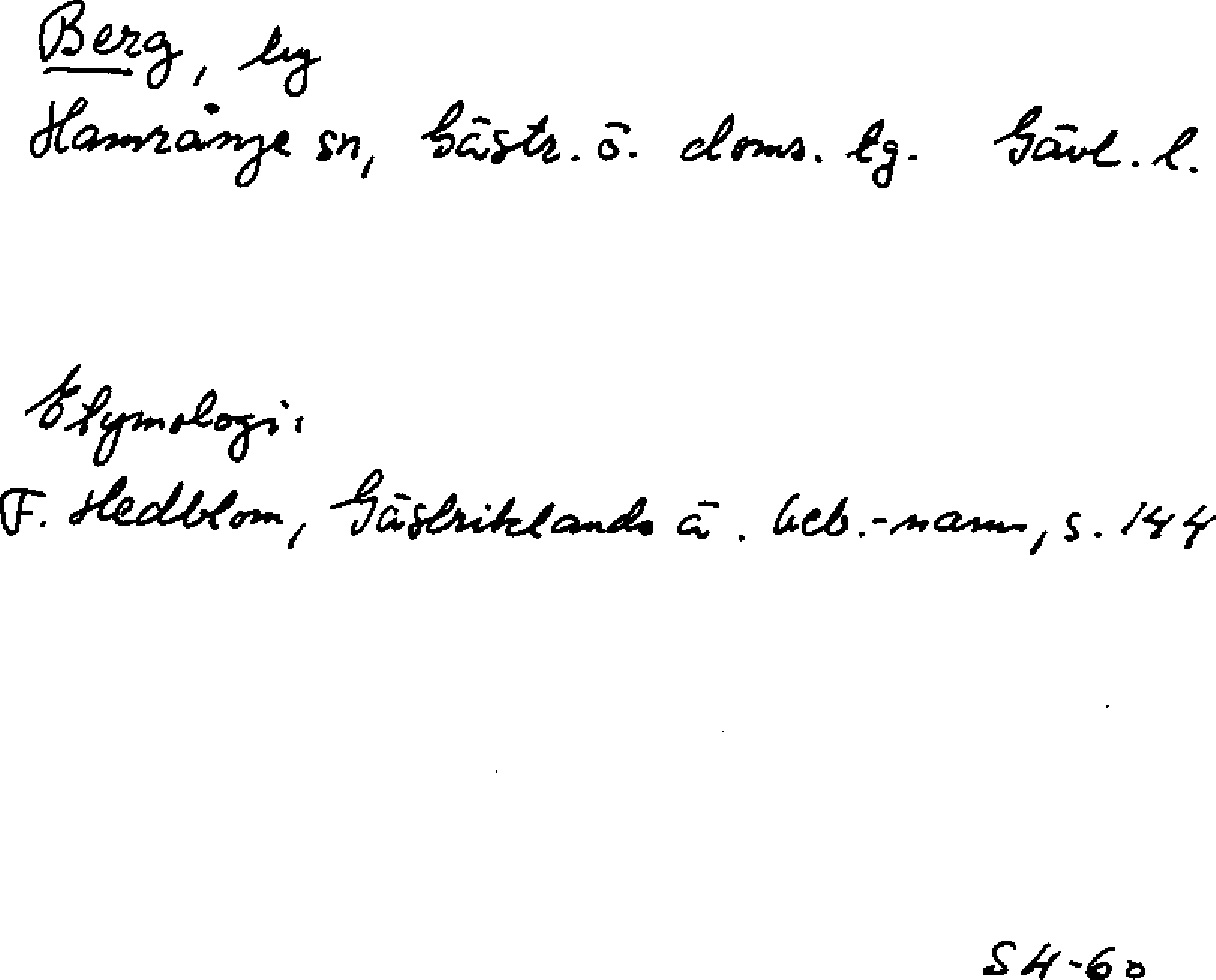 Berg, by
Hamrånge sn, Gästr. ö. doms. tg. Gävl. l.
Etymologi:
F. Hedblom, Gästriklands ä. beb.-namn, s. 144
S H-60